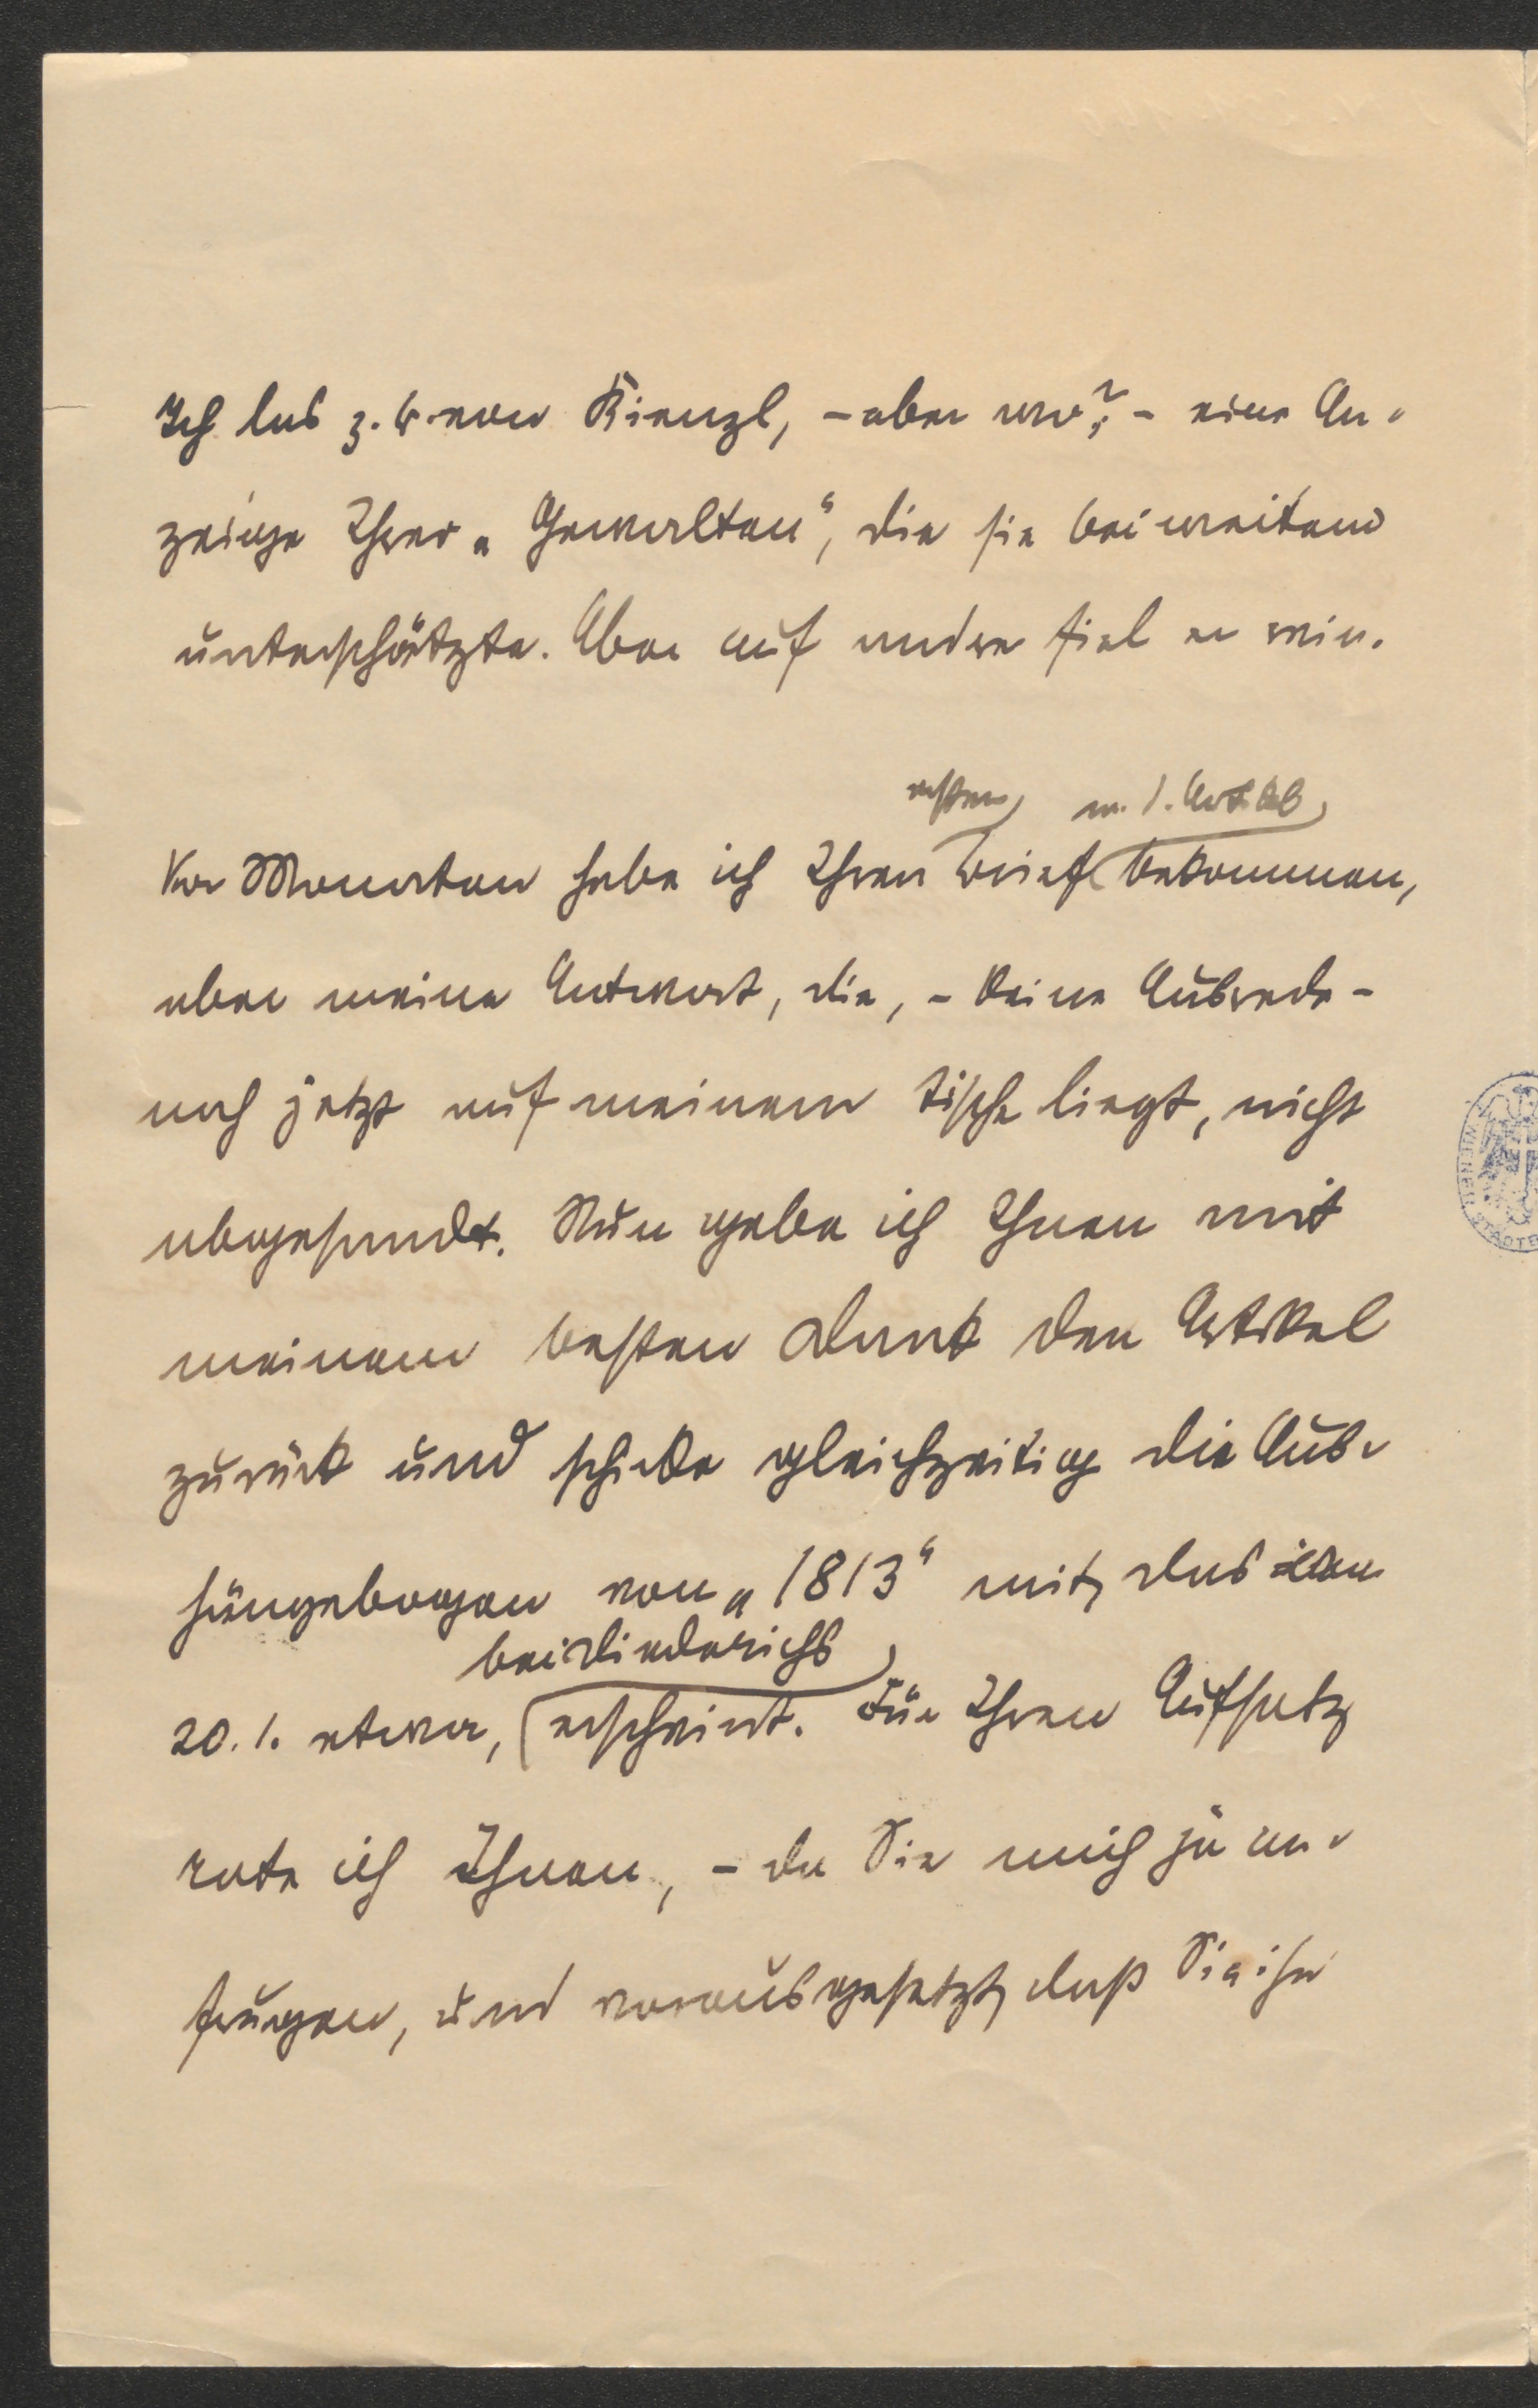 Ich las z. B. von Kienzl, – aber wo? – eine An-
zeige Ihrer „Gewalten“, die sie bei weitem
unterschätzte. Aber auf andre fiel er rein.
ersten m. d. Artikel
Vor Monaten habe ich Ihren Brief bekommen,
aber meine Antwort, die, – keine Ausrede –
noch jetzt auf meinem Tische liegt, nicht
abgesandt. Nun gebe ich Ihnen mit
meinem besten Dank den Artikel
zurück und schicke gleichzeitig die Aus-
hängebogen von „1813“ mit, das
bei Diederichs
20. 1. etwa, erscheint. Für Ihren Aufsatz
rate ich Ihnen, – da Sie mich ja an-
fragen, und vorausgesetzt, daß Sie ihn
WIENER STADTB